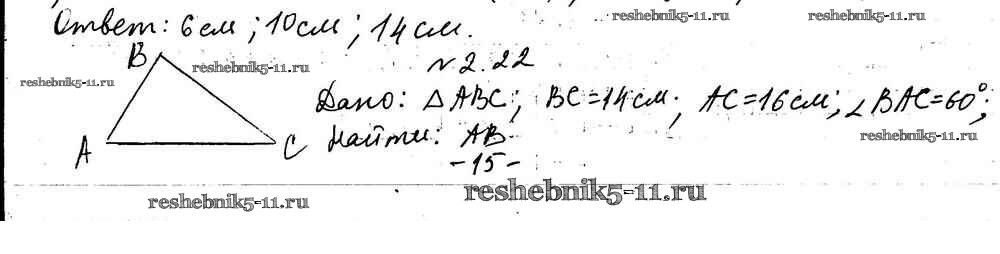 Ответ: 6 см; 10 см; 14 см.
reshebnik5-11.ru reshebnik5-11.ru
B
reshebnik5-11.ru
reshebnik5-11.ru
№ 2.22
Дано: △ABC; BC=14 см; AC=16 см; ∠BAC=60°;
A C
Найти: AB.
reshebnik5-11.ru
-15-
reshebnik5-11.ru
reshebnik5-11.ru